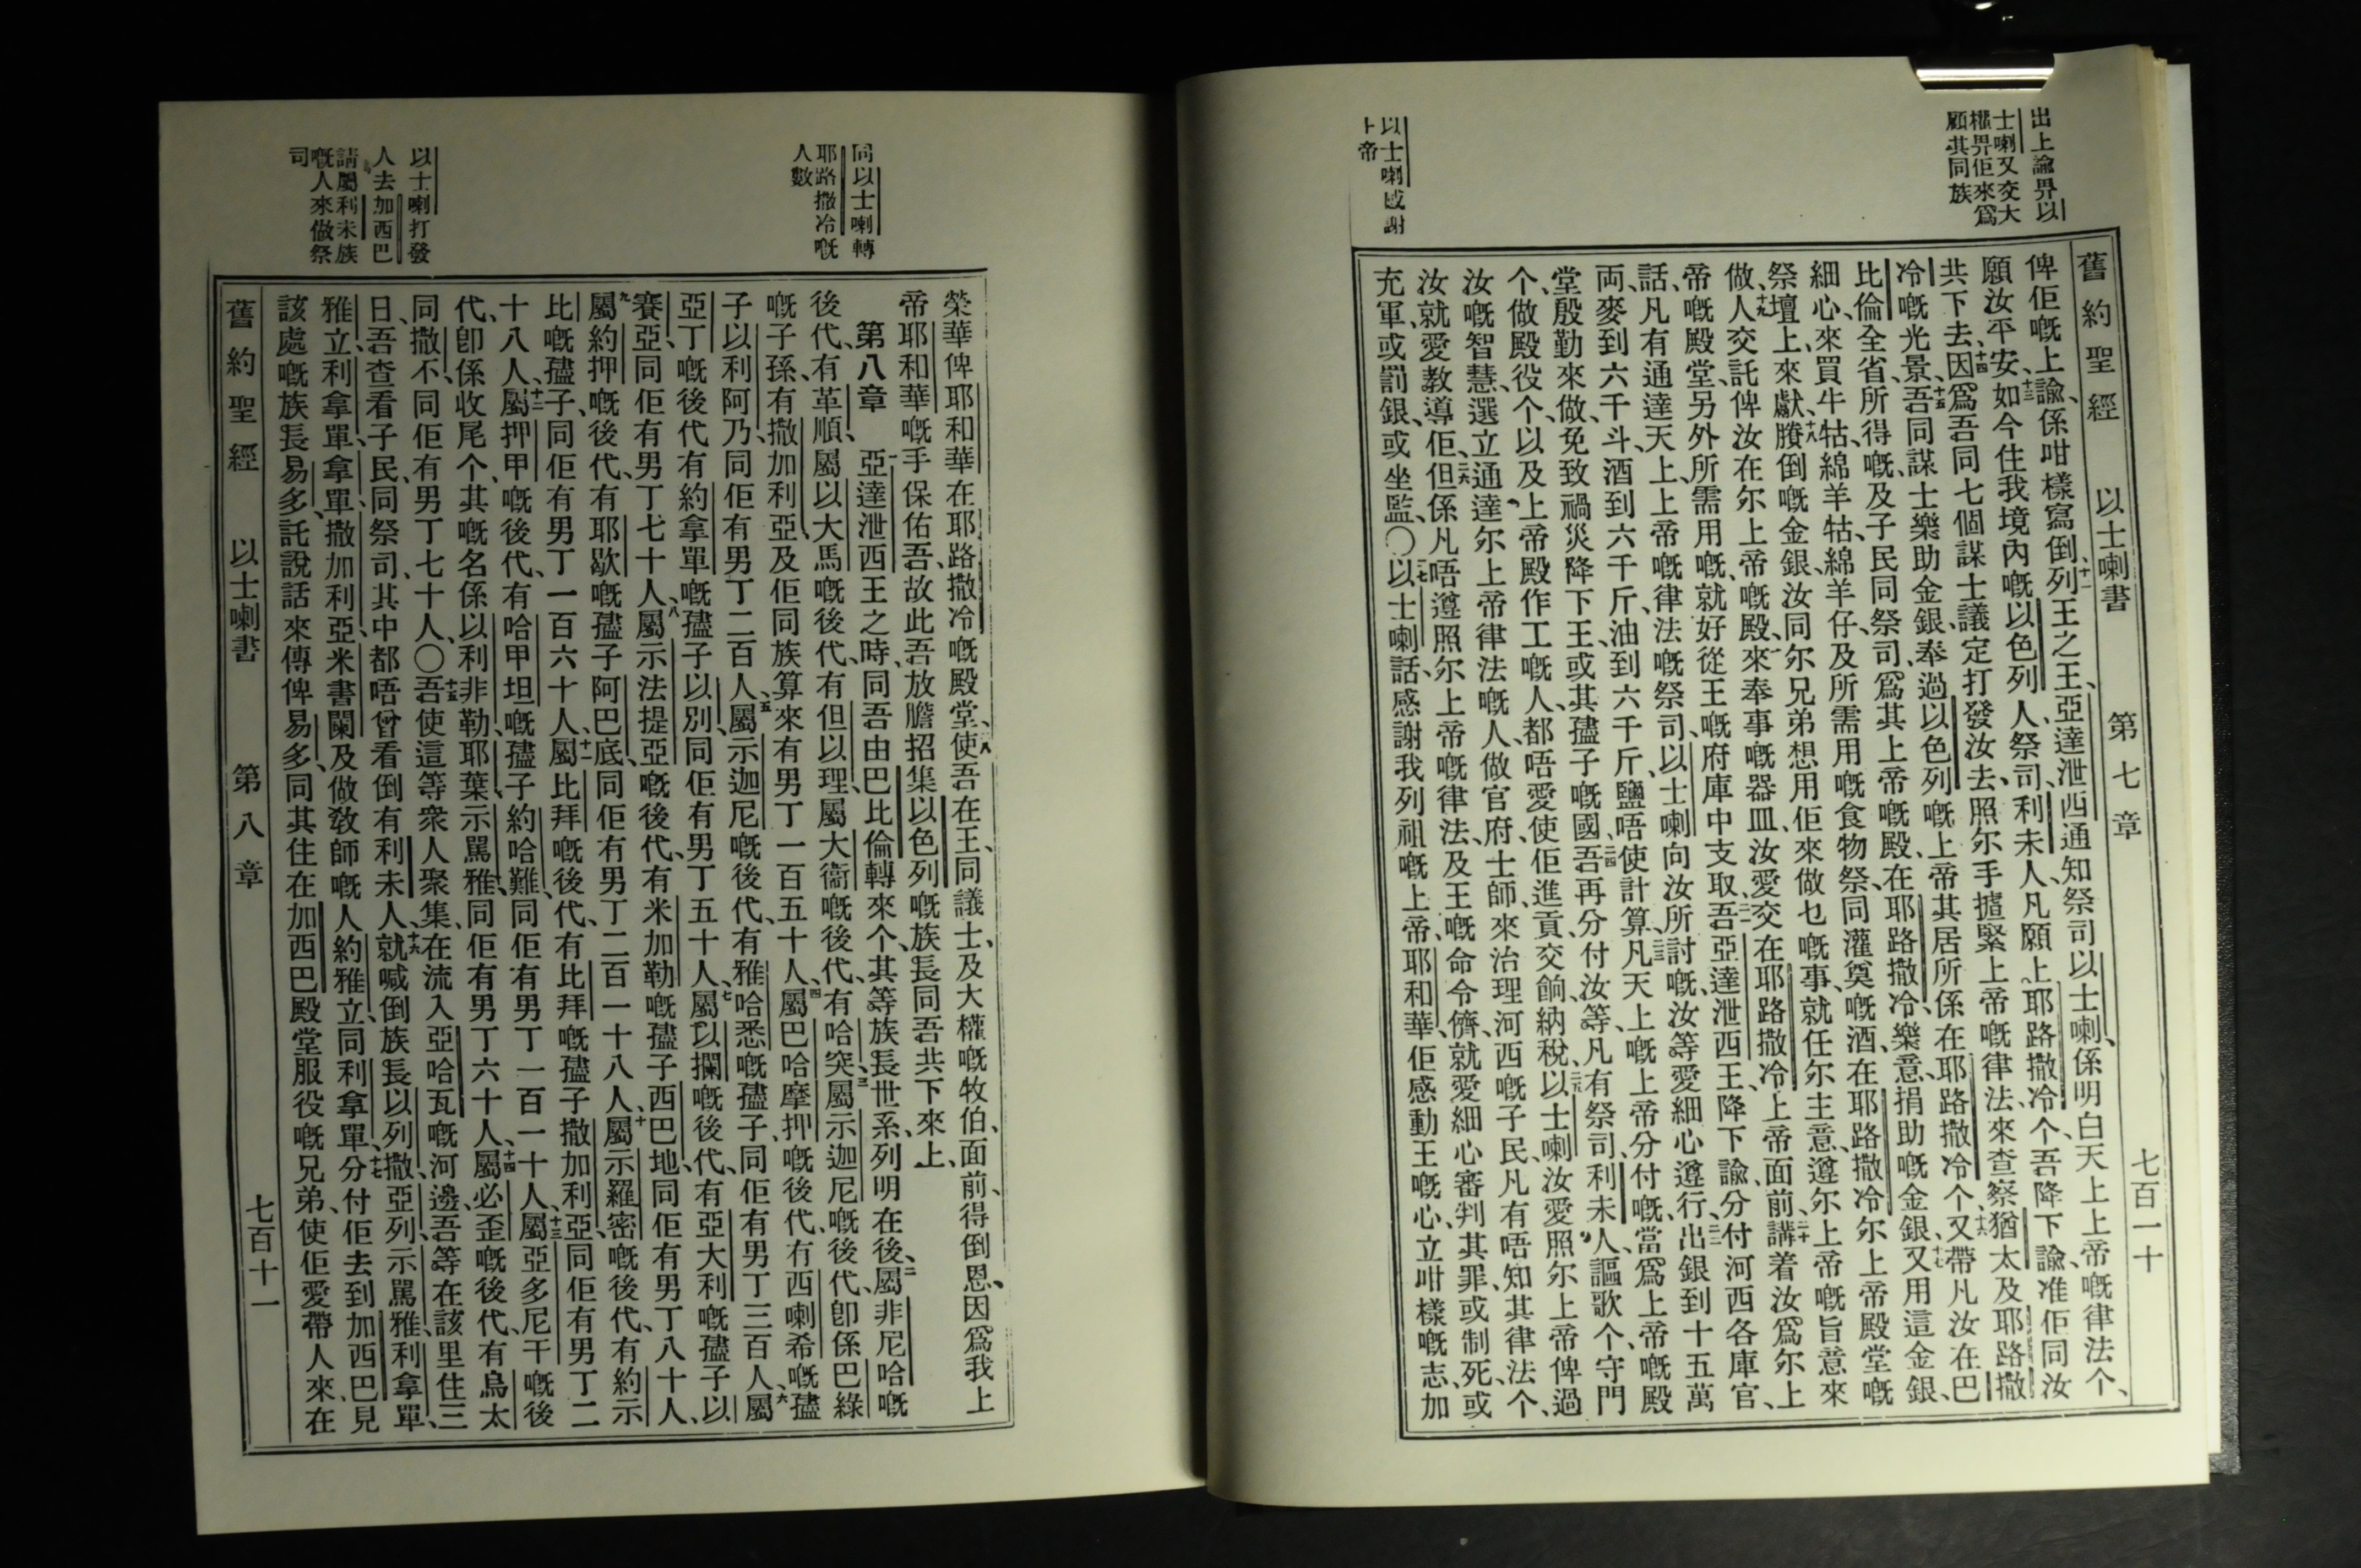 舊約聖經 以士喇書 第七章 七百一十
出上諭畀以
士喇又交大
權畀佢來爲
顧其同族
俾佢嘅上諭、係咁樣寫倒、十二列王之王、亞達泄西通知祭司以士喇、係明白天上上帝嘅律法个、
願汝平安、十三如今住我境內嘅以色列人、祭司、利未人、凡願上耶路撒冷个、吾降下諭、准佢同汝
共下去、十四因爲吾同七個謀士議定打發汝去、照尔手揸緊上帝嘅律法、來查察猶太及耶路撒
冷嘅光景、十五吾同謀士樂助金銀、奉過以色列嘅上帝、其居所係在耶路撒冷个、十六又帶凡汝在巴
比倫全省所得嘅、及子民同祭司、爲其上帝嘅殿、在耶路撒冷、樂意捐助嘅金銀、十七又用這金銀、
細心來買牛牯、綿羊牯、綿羊仔、及所需用嘅食物祭、同灌奠嘅酒、在耶路撒冷尔上帝殿堂嘅
祭壇上來獻、十八賸倒嘅金銀、汝同尔兄弟想用佢來做乜嘅事、就任尔主意、遵尔上帝嘅旨意來
做、十九人交託俾汝在尔上帝嘅殿、來奉事嘅器皿、汝愛交在耶路撒冷上帝面前、二十講着汝爲尔上
帝嘅殿堂、另外所需用嘅、就好從王嘅府庫中支取、二一吾亞達泄西王、降下諭、分付河西各庫官、
話、凡有通達天上上帝嘅律法嘅祭司、以士喇向汝所討嘅、汝等愛細心遵行、二二出銀到十五萬
両、麥到六千斗、酒到六千斤、油到六千斤、鹽唔使計算、二三凡天上嘅上帝分付嘅、當爲上帝嘅殿
堂、殷勤來做、免致禍災降下王、或其孻子嘅國、二四吾再分付汝等、凡有祭司、利未人、謳歌个、守門
个、做殿役个、以及上帝殿作工嘅人、都唔愛使佢進貢、交餉、納稅、二五以士喇汝愛照尔上帝俾過
汝嘅智慧、選立通達尔上帝律法嘅人、做官府、士師、來治理河西嘅子民、凡有唔知其律法个、
汝就愛教導佢、二六但係凡唔遵照尔上帝嘅律法、及王嘅命令儕、就愛細心審判其罪、或制死、或
充軍、或罰銀、或坐監、〇二七以士喇話、感謝我列祖嘅上帝、耶和華、佢感動王嘅心、立咁樣嘅志、加
以士喇感謝
上帝
榮華俾耶和華在耶路撒冷嘅殿堂、二八使吾在王、同議士、及大權嘅牧伯、面前、得倒恩、因爲我上
帝耶和華嘅手保佑吾、故此吾放膽招集以色列嘅族長同吾共下來上、
同以士喇轉
耶路撒冷嘅
人數
第八章 一亞達泄西王之時、同吾由巴比倫轉來个、其等族長世系、列明在後、二屬非尼哈嘅
後代、有革順、屬以大馬嘅後代、有但以理、屬大衞嘅後代、有哈突、三屬示迦尼嘅後代、卽係巴綠
嘅子孫、有撒加利亞、及佢同族算來有男丁一百五十人、四屬巴哈摩押嘅後代、有西喇希嘅孻
子以利阿乃、同佢有男丁二百人、五屬示迦尼嘅後代、有雅哈悉嘅孻子、同佢有男丁三百人、六屬
亞丁嘅後代、有約拿單嘅孻子以別、同佢有男丁五十人、七屬以攔嘅後代、有亞大利嘅孻子以
賽亞、同佢有男丁七十人、八屬示法提亞嘅後代、有米加勒嘅孻子西巴地、同佢有男丁八十人、
九屬約押嘅後代、有耶歇嘅孻子阿巴底、同佢有男丁二百一十八人、十屬示羅密嘅後代、有約示
比嘅孻子、同佢有男丁一百六十人、十一屬比拜嘅後代、有比拜嘅孻子撒加利亞、同佢有男丁二
十八人、十二屬押甲嘅後代、有哈甲坦嘅孻子約哈難、同佢有男丁一百一十人、十三屬亞多尼干嘅後
代、卽係收尾个、其嘅名係以利非勒、耶葉、示罵雅、同佢有男丁六十人、十四屬必歪嘅後代、有烏太
同撒不、同佢有男丁七十人、〇十五吾使這等衆人聚集、在流入亞哈瓦嘅河邊、吾等在該里住三
日、吾查看子民、同祭司、其中都唔曾看倒有利未人、十六就喊倒族長以列撒、亞列、示罵雅、利拿單、
雅立、利拿單、拿單、撒加利亞、米書闌、及做敎師嘅人約雅立、同利拿單、十七分付佢去到加西巴、見
該處嘅族長易多、託說話來傳俾易多、同其住在加西巴殿堂服役嘅兄弟、使佢愛帶人來、在
以士喇打發
人去加西巴
請屬利未族
嘅人來做祭
司
舊約聖經 以士喇書 第八章 七百十一